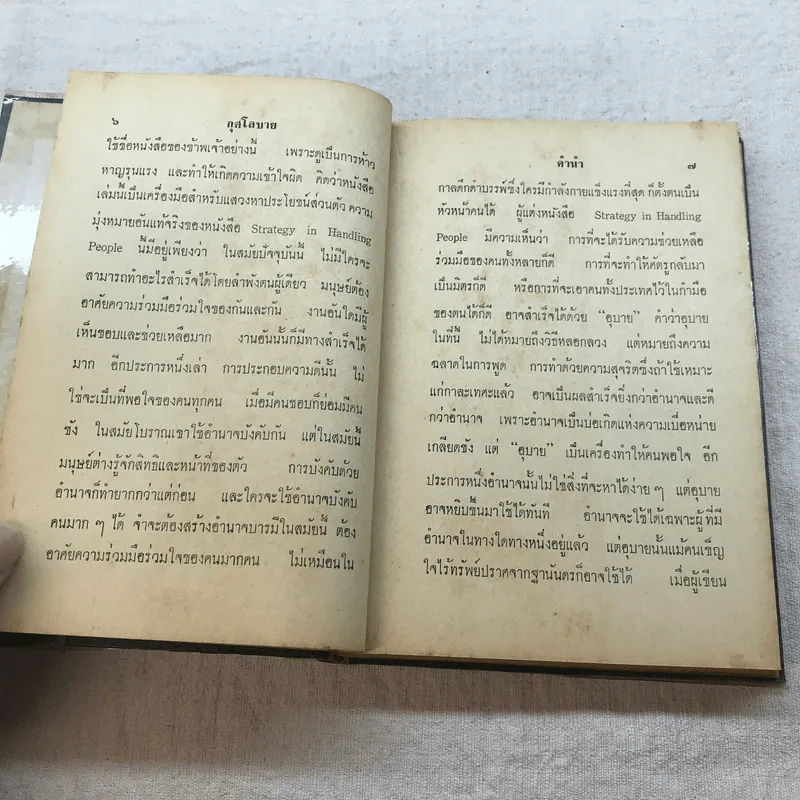 ๖ กุศโลบาย
ใช้ชื่อหนังสือของข้าพเจ้าอย่างนี้ เพราะดูเป็นการห้าว
หาญรุนแรง และทำให้เกิดความเข้าใจผิด คิดว่าหนังสือ
เล่มนี้เป็นเครื่องมือสำหรับแสวงหาประโยชน์ส่วนตัว ความ
มุ่งหมายอันแท้จริงของหนังสือ Strategy in Handling
People นี้มีอยู่เพียงว่า ในสมัยปัจจุบันนี้ ไม่มีใครจะ
สามารถทำอะไรสำเร็จได้โดยลำพังตนผู้เดียว มนุษย์ต้อง
อาศัยความร่วมมือร่วมใจของกันและกัน งานอันใดมีผู้
เห็นชอบและช่วยเหลือมาก งานอันนั้นก็มีทางสำเร็จได้
มาก อีกประการหนึ่งเล่า การประกอบความดีนั้น ไม่
ใช่จะเป็นที่พอใจของคนทุกคน เมื่อมีคนชอบก็ย่อมมีคน
ชัง ในสมัยโบราณเขาใช้อำนาจบังคับกัน แต่ในสมัยนี้
มนุษย์ต่างรู้จักสิทธิและหน้าที่ของตัว การบังคับด้วย
อำนาจก็ทำยากกว่าแต่ก่อน และใครจะใช้อำนาจบังคับ
คนมาก ๆ ได้ จำจะต้องสร้างอำนาจบารมีในสมัยนี้ ต้อง
อาศัยความร่วมมือร่วมใจของคนมากคน ไม่เหมือนใน
คำนำ ๗
กาลดึกดำบรรพ์ซึ่งใครมีกำลังกายแข็งแรงที่สุด ก็ตั้งตนเป็น
หัวหน้าคนได้ ผู้แต่งหนังสือ Strategy in Handling
People มีความเห็นว่า การที่จะได้รับความช่วยเหลือ
ร่วมมือของคนทั้งหลายก็ดี การที่จะทำให้ศัตรูกลับมา
เป็นมิตรก็ดี หรือการที่จะเอาคนทั้งประเทศไว้ในกำมือ
ของตนได้ก็ดี อาจสำเร็จได้ด้วย “อุบาย” คำว่าอุบาย
ในที่นี้ ไม่ได้หมายถึงวิธีหลอกลวง แต่หมายถึงความ
ฉลาดในการพูด การทำด้วยความสุจริตซึ่งถ้าใช้เหมาะ
แก่กาละเทศะแล้ว อาจเป็นผลสำเร็จยิ่งกว่าอำนาจและดี
กว่าอำนาจ เพราะอำนาจเป็นบ่อเกิดแห่งความเบื่อหน่าย
เกลียดชัง แต่ “อุบาย” เป็นเครื่องทำให้คนพอใจ อีก
ประการหนึ่งอำนาจนั้นไม่ใช่สิ่งที่จะหาได้ง่าย ๆ แต่อุบาย
อาจหยิบขึ้นมาใช้ได้ทันที อำนาจจะใช้ได้เฉพาะผู้ที่มี
อำนาจในทางใดทางหนึ่งอยู่แล้ว แต่อุบายนั้นแม้คนเข็ญ
ใจไร้ทรัพย์ปราศจากฐานันดรก็อาจใช้ได้ เมื่อผู้เขียน